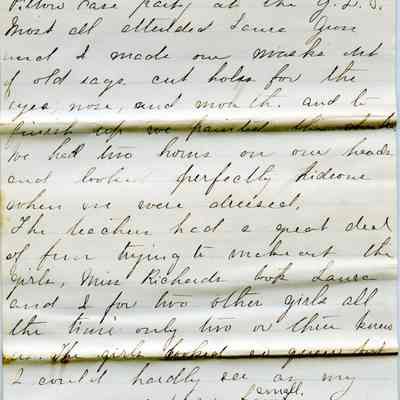 Pillow Case party at the G.L.S.
Most all attended Laura Goss
and I made our masks out
of old rags cut holes for the
eyes, nose, and mouth. and to
finish up we painted them
We had two horns on our heads
and looked perfectly hideous
when we were dressed.
The teachers had a great deal
of fun trying to make out the
girls, Miss Richards took Laura
and I for two other girls all
the time only two or three knew
us. The girls looked so queer but
I could hardly see as my
small.